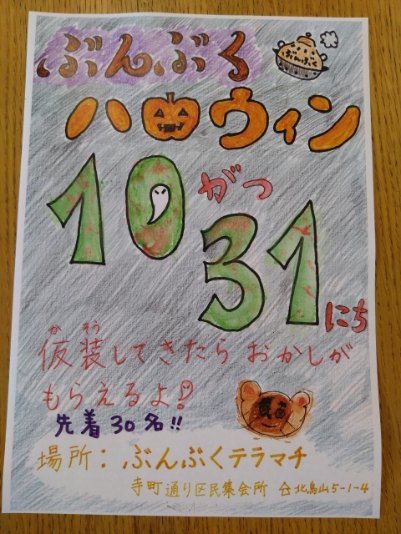 ぶんぶく
ぶんぶく
ハロウィン
10がつ
31にち
か そう
仮装してきたら おかしが
もらえるよ!
先着30名!!
場所：ぶんぶくテラマチ
寺町通り区民集会所 北烏山5-1-4